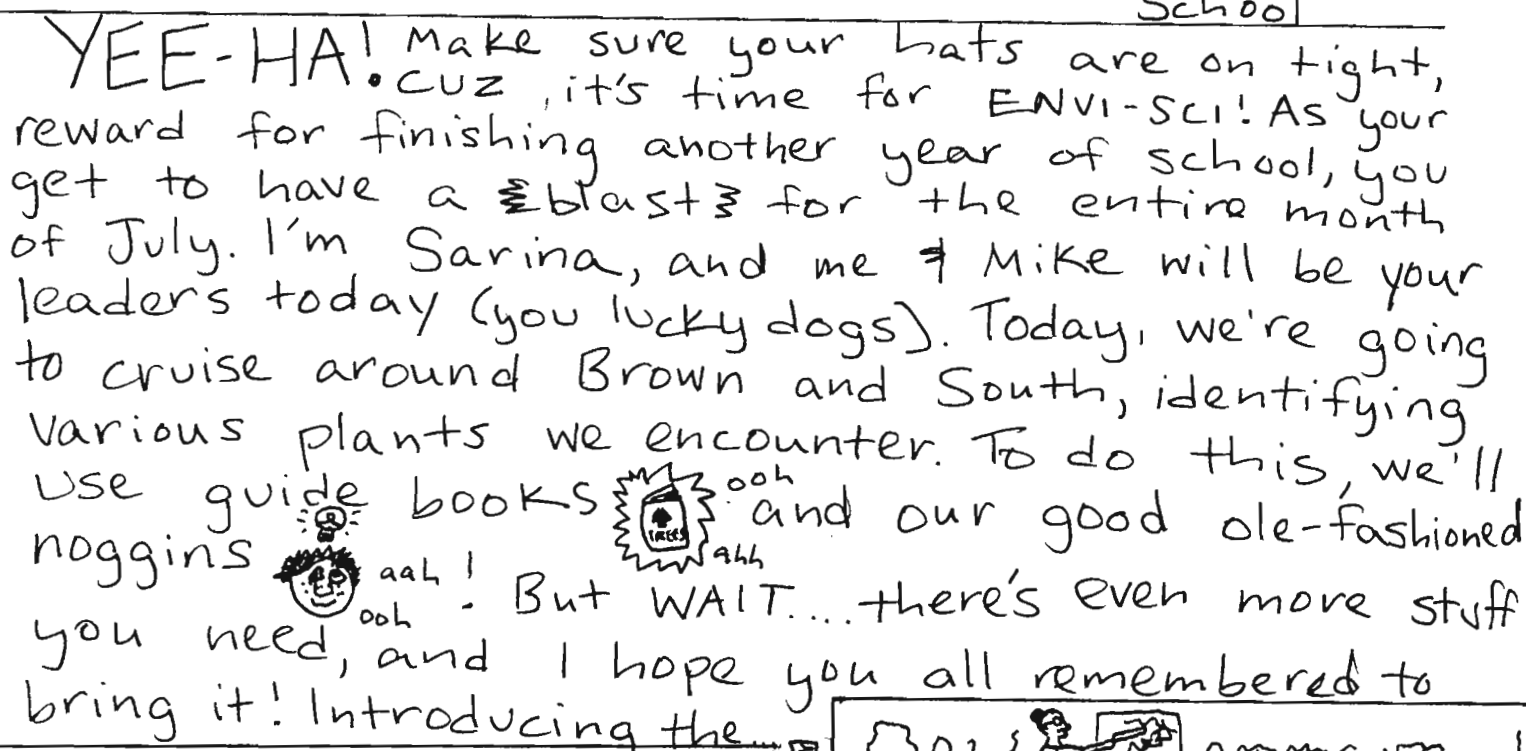 School
YEE-HA! Make sure your hats are on tight,
cuz, it's time for ENVI-SCI! As your
reward for finishing another year of school, you
get to have a blast for the entire month
of July. I'm Sarina, and me & Mike will be your
leaders today (you lucky dogs). Today, we're going
to cruise around Brown and South, identifying
various plants we encounter. To do this, we'll
use guide books ooh and our good ole-fashioned
TREES ahh
noggins aah ooh! But WAIT.... there's even more stuff
you need, and I hope you all remembered to
bring it! Introducing the...